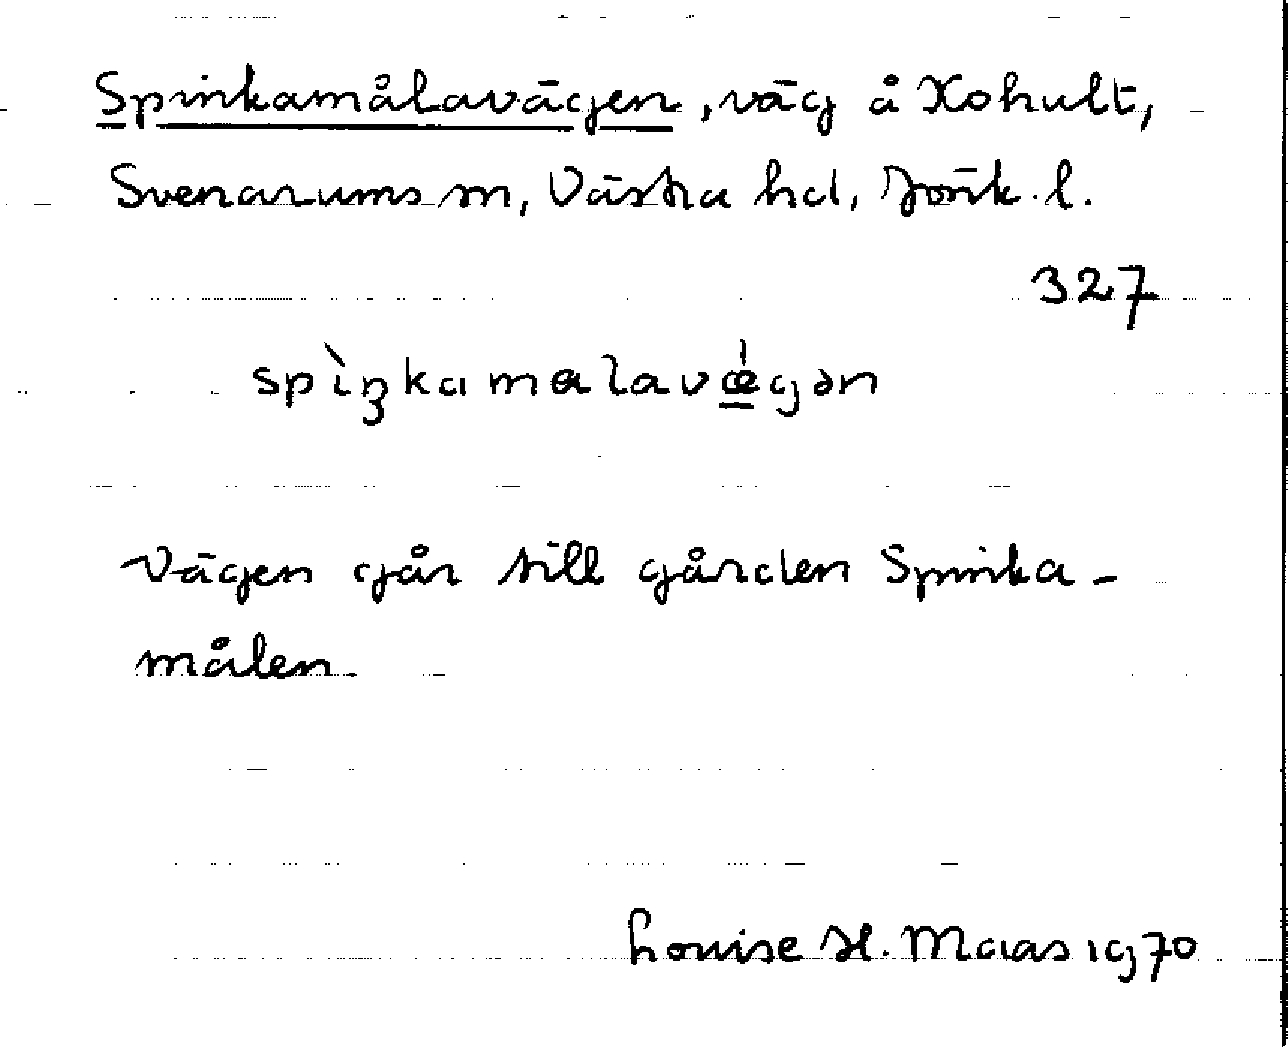 Spinkamålavägen, väg å Kohult,
Svenarums sn, Västra hd, Jönk. l.
327
spìŋkamalavǽgən
Vägen går till gården Spinka-
målen.
Louise H. Maas 1970